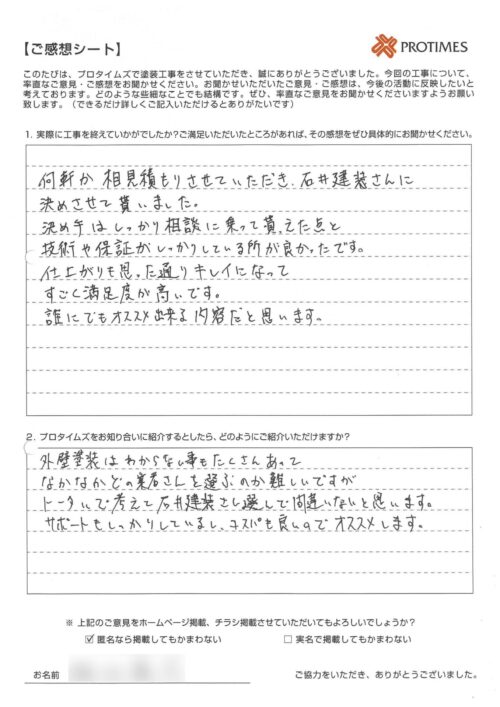 【ご感想シート】
PROTIMES
このたびは、プロタイムズで塗装工事をさせていただき、誠にありがとうございました。今回の工事について、
率直なご意見・ご感想をお聞かせください。お聞かせいただいたご意見・ご感想は、今後の活動に反映したいと
考えております。どのような些細なことでも結構です。ぜひ、率直なご意見をお聞かせくださいますようお願い
致します。（できるだけ詳しくご記入いただけるとありがたいです）
1. 実際に工事を終えていかがでしたか？ご満足いただいたところがあれば、その感想をぜひ具体的にお聞かせください。
何軒か相見積もりさせていただき、石井建装さんに
決めさせて貰いました。
決め手はしっかり相談に乗って貰えた点と
技術や保証がしっかりしている所が良かったです。
仕上がりも思った通りキレイになって
すごく満足度が高いです。
誰にでもオススメ出来る内容だと思います。
2. プロタイムズをお知り合いに紹介するとしたら、どのようにご紹介いただけますか？
外壁塗装はわからない事もたくさんあって
なかなかどの業者さんを選ぶのか難しいですが
トータルで考えて石井建装さん選んで間違いないと思います。
サポートもしっかりしているし、コスパも良いのでオススメします。
※ 上記のご意見をホームページ掲載、チラシ掲載させていただいてもよろしいでしょうか？
☑ 匿名なら掲載してもかまわない
□ 実名で掲載してもかまわない
お名前
ご協力をいただき、ありがとうございました。